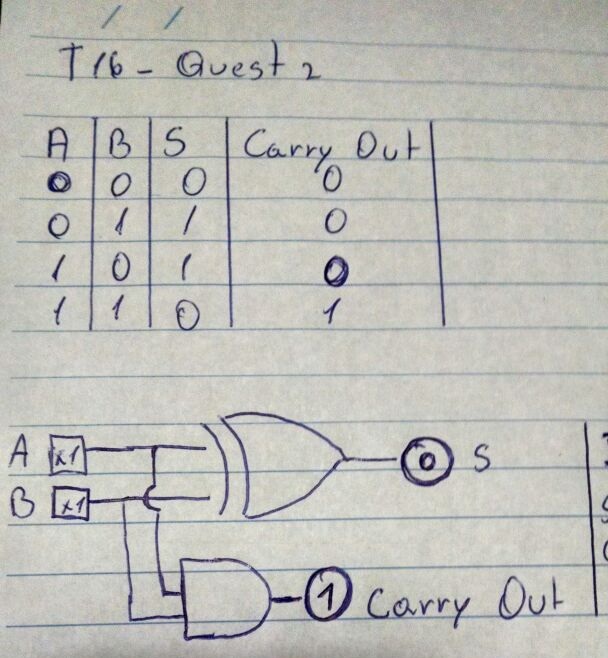 T16 - Quest 2
A B S Carry Out
0 0 0 0
0 1 1 0
1 0 1 0
1 1 0 1
A x1 0 S
B x1
1 Carry Out